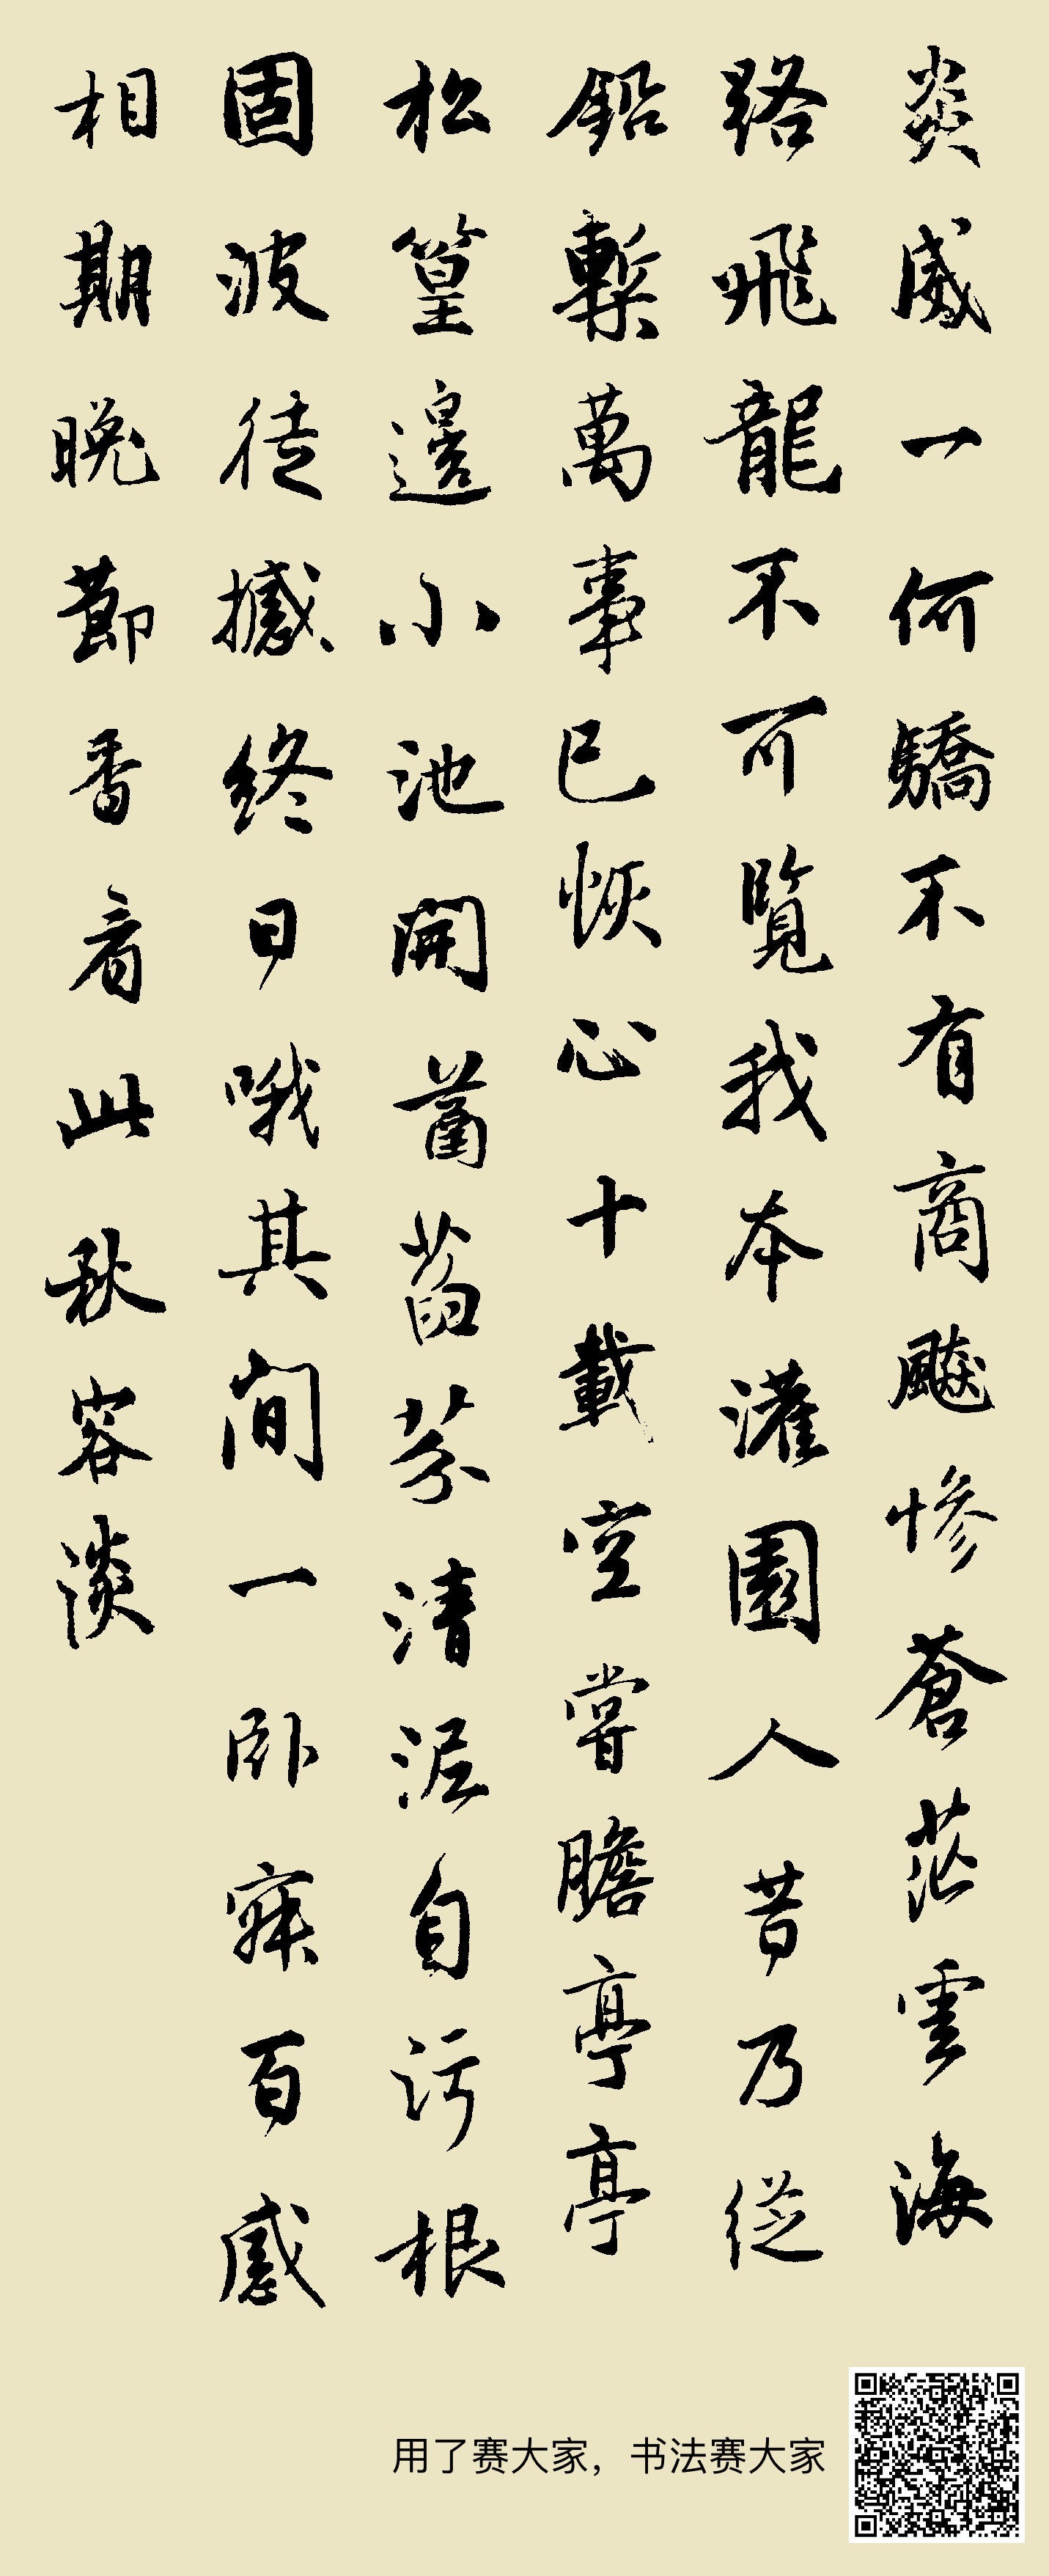 炎威一何驕不有商飇慘蒼茫雲海
路飛龍不可覽我本灌園人昔乃從
鉛槧萬事已恢心十載空嘗膽亭亭
松篁邊小池開菡萏芬清泥自污根
固波徒撼終日哦其間一卧寐百感
相期晚節香看此秋容淡
用了赛大家，书法赛大家